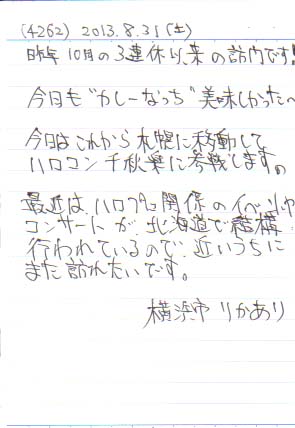 (4262) 2013.8.31(土)
昨年10月の3連休以来の訪問です!
今日も"かしーなっち"美味しかった
今日はこれから札幌に移動して
ハロコン千秋楽に参戦します。
最近は、ハロプロ関係のイベントや
コンサートが北海道で結構
行われているので、近いうちに
また訪れたいです。
横浜市 りかあり